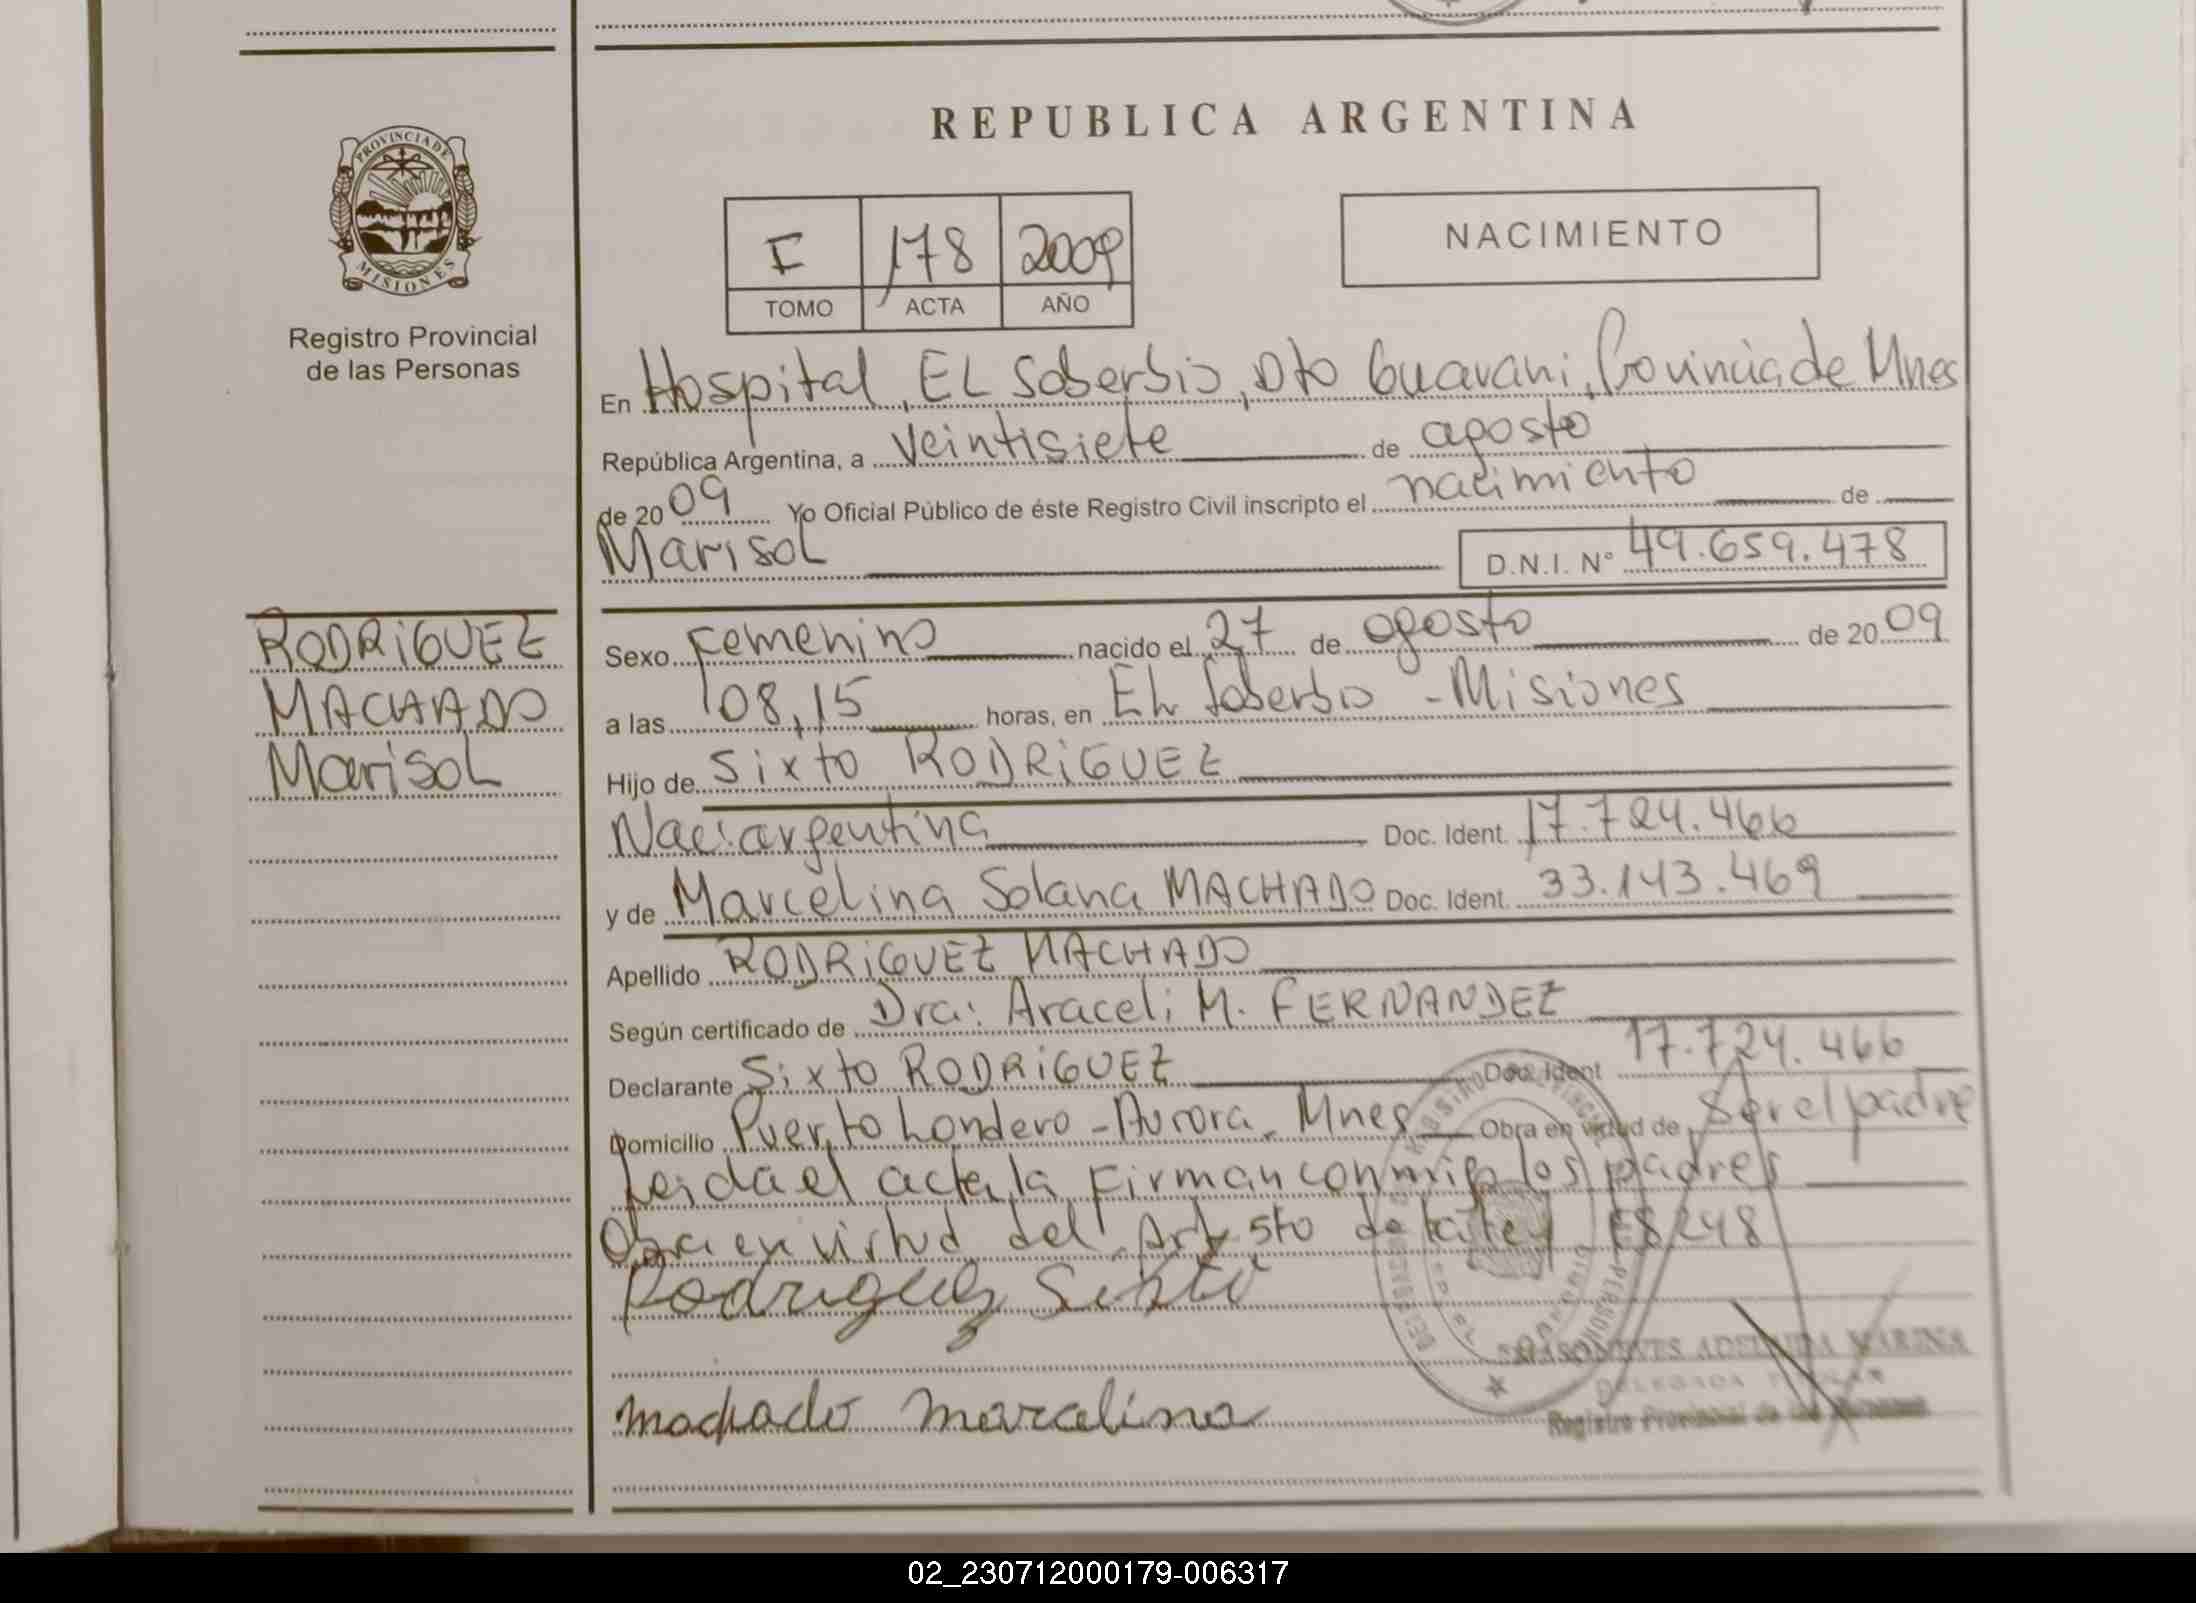 REPUBLICA ARGENTINA
PROVINCIA DE
MISIONES
Registro Provincial
de las Personas
I 178 2009
TOMO ACTA AÑO
NACIMIENTO
En Hospital, EL Soberbio, Dto Guarani, Provincia de Mnes
República Argentina, a veintisiete de agosto
de 2009 Yo Oficial Público de éste Registro Civil inscripto el nacimiento de
Marisol D.N.I. Nº 49.659.478
RODRIGUEZ
MACHADO
Marisol
Sexo Femenino nacido el 27 de agosto de 2009
a las 08,15 horas, en EL Soberbio - Misiones
Hijo de Sixto RODRIGUEZ
Nac: argentina Doc. Ident. 17.724.466
y de Marcelina Solana MACHADO Doc. Ident. 33.143.469
Apellido RODRIGUEZ MACHADO
Según certificado de Dra: Araceli M. FERNANDEZ
Declarante Sixto RODRIGUEZ Doc. Ident 17.724.466
Domicilio Puerto Londero - Aurora - Mnes Obra en virtud de ser el padre
Leida el acta la Firman conmigo los padres
Obra en virtud del Art 5to de la ley 18248
Rodriguez Sixto
ADELINDA MARINA
DELEGADA
Registro Provincial de las Personas
machado marcelina
02_230712000179-006317